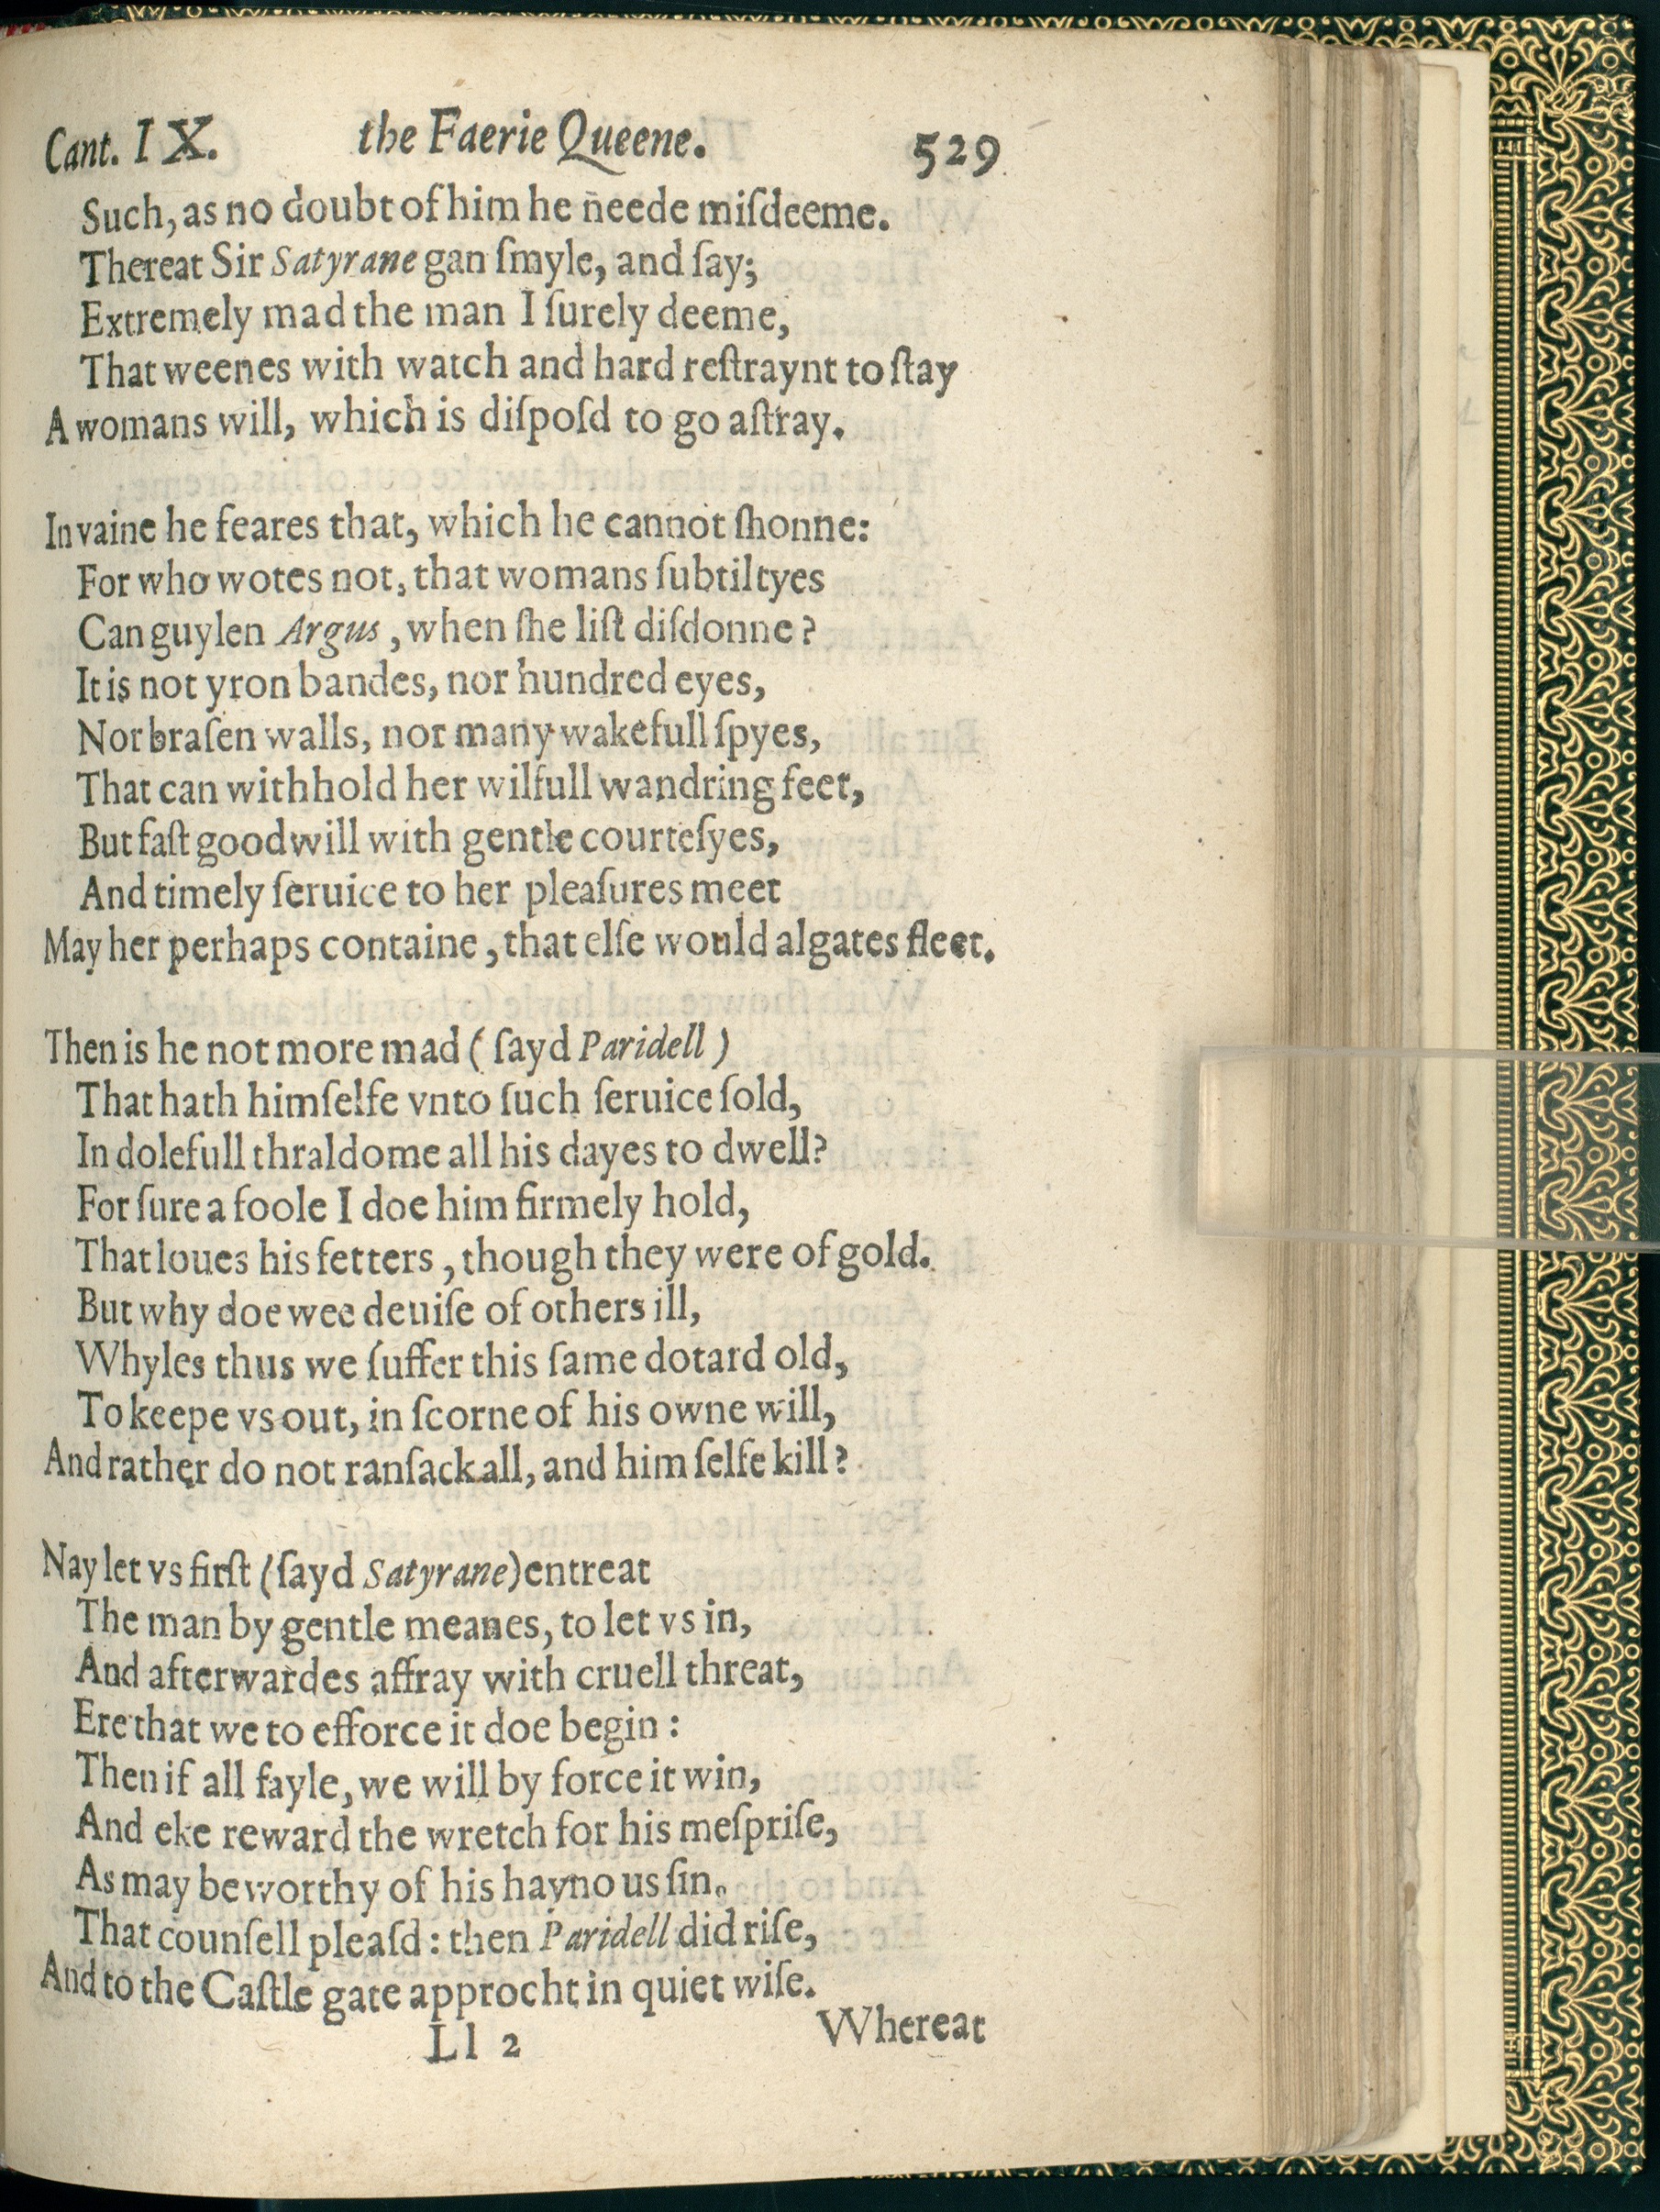 Cant. IX. the Faerie Queene. 529
Such, as no doubt of him he neede miſdeeme.
Thereat Sir Satyrane gan ſmyle, and ſay;
Extremely mad the man I ſurely deeme,
That weenes with watch and hard reſtraynt to ſtay
A womans will, which is diſpoſd to go aſtray.
In vaine he feares that, which he cannot ſhonne:
For who wotes not, that womans ſubtiltyes
Can guylen Argus, when ſhe liſt diſdonne?
It is not yron bandes, nor hundred eyes,
Nor braſen walls, nor many wakefull ſpyes,
That can withhold her wilfull wandring feet,
But faſt goodwill with gentle courteſyes,
And timely ſeruice to her pleaſures meet
May her perhaps containe, that elſe would algates fleet.
Then is he not more mad (ſayd Paridell)
That hath himſelfe vnto ſuch ſeruice ſold,
In dolefull thraldome all his dayes to dwell?
For ſure a foole I doe him firmely hold,
That loues his fetters, though they were of gold.
But why doe wee deuiſe of others ill,
Whyles thus we ſuffer this ſame dotard old,
To keepe vs out, in ſcorne of his owne will,
And rather do not ranſack all, and him ſelfe kill?
Nay let vs firſt (ſayd Satyrane) entreat
The man by gentle meanes, to let vs in,
And afterwardes affray with cruell threat,
Ere that we to efforce it doe begin:
Then if all fayle, we will by force it win,
And eke reward the wretch for his meſpriſe,
As may be worthy of his haynous ſin.
That counſell pleaſd: then Paridell did riſe,
And to the Caſtle gate approcht in quiet wiſe.
Ll 2 Whereat